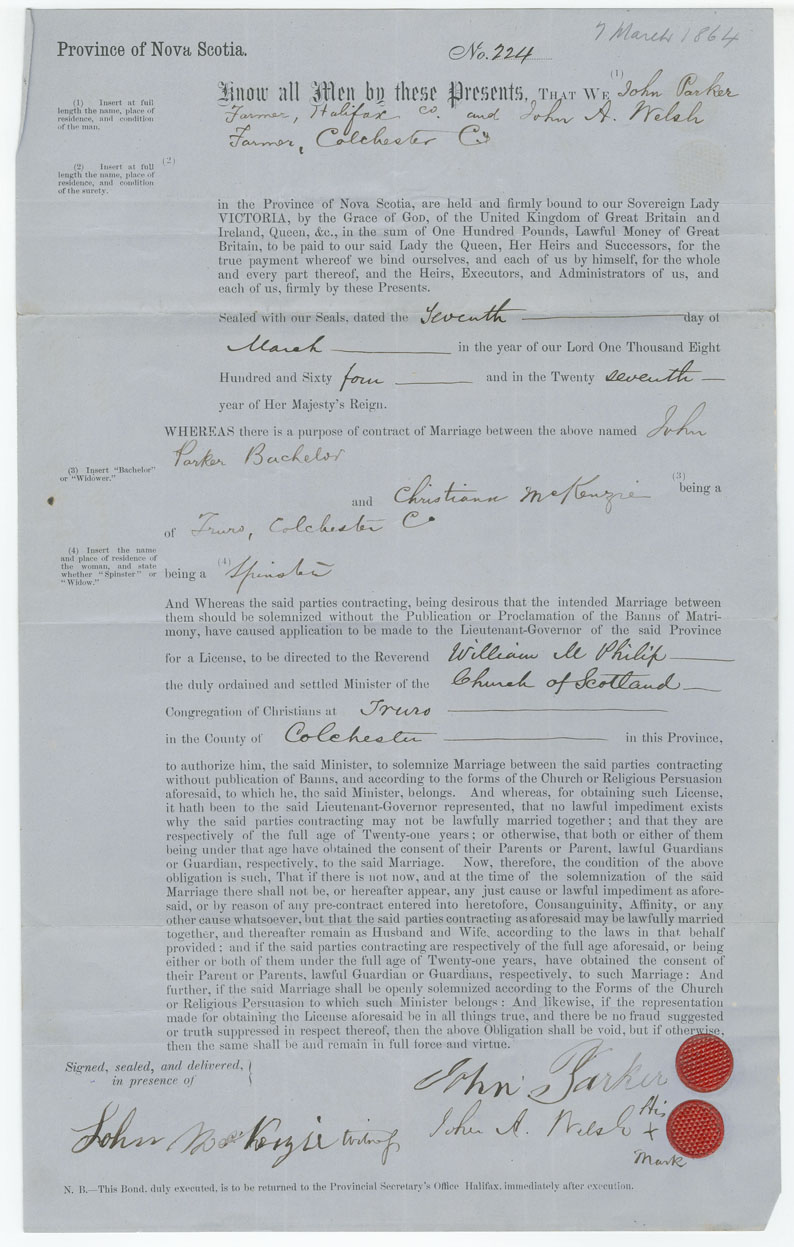 7 March 1864
Province of Nova Scotia.
No. 224
(1)
Know all Men by these Presents, THAT WE John Parker
Farmer, Halifax Co. and John A. Welsh
Farmer, Colchester Co
(1) Insert at full
length the name, place of
residence, and condition
of the man.
(2)
(2) Insert at full
length the name, place of
residence, and condition
of the surety.
in the Province of Nova Scotia, are held and firmly bound to our Sovereign Lady
VICTORIA, by the Grace of GOD, of the United Kingdom of Great Britain and
Ireland, Queen, &c., in the sum of One Hundred Pounds, Lawful Money of Great
Britain, to be paid to our said Lady the Queen, Her Heirs and Successors, for the
true payment whereof we bind ourselves, and each of us by himself, for the whole
and every part thereof, and the Heirs, Executors, and Administrators of us, and
each of us, firmly by these Presents.
Sealed with our Seals, dated the Seventh day of
March in the year of our Lord One Thousand Eight
Hundred and Sixty four and in the Twenty seventh
year of Her Majesty's Reign.
WHEREAS there is a purpose of contract of Marriage between the above named John
Parker Bachelor
(3) Insert "Bachelor"
or "Widower."
(3)
and Christiann McKenzie being a
of Truro, Colchester Co
(4) Insert the name
and place of residence of
the woman, and state
whether "Spinster" or
"Widow."
(4)
being a Spinster
And Whereas the said parties contracting, being desirous that the intended Marriage between
them should be solemnized without the Publication or Proclamation of the Banns of Matri-
mony, have caused application to be made to the Lieutenant-Governor of the said Province
for a License, to be directed to the Reverend William M Philip
the duly ordained and settled Minister of the Church of Scotland
Congregation of Christians at Truro
in the County of Colchester in this Province,
to authorize him, the said Minister, to solemnize Marriage between the said parties contracting
without publication of Banns, and according to the forms of the Church or Religious Persuasion
aforesaid, to which he, the said Minister, belongs. And whereas, for obtaining such License,
it hath been to the said Lieutenant-Governor represented, that no lawful impediment exists
why the said parties contracting may not be lawfully married together; and that they are
respectively of the full age of Twenty-one years; or otherwise, that both or either of them
being under that age have obtained the consent of their Parents or Parent, lawful Guardians
or Guardian, respectively, to the said Marriage. Now, therefore, the condition of the above
obligation is such, That if there is not now, and at the time of the solemnization of the said
Marriage there shall not be, or hereafter appear, any just cause or lawful impediment as afore-
said, or by reason of any pre-contract entered into heretofore, Consanguinity, Affinity, or any
other cause whatsoever, but that the said parties contracting as aforesaid may be lawfully married
together, and thereafter remain as Husband and Wife, according to the laws in that behalf
provided; and if the said parties contracting are respectively of the full age aforesaid, or being
either or both of them under the full age of Twenty-one years, have obtained the consent of
their Parent or Parents, lawful Guardian or Guardians, respectively, to such Marriage: And
further, if the said Marriage shall be openly solemnized according to the Forms of the Church
or Religious Persuasion to which such Minister belongs: And likewise, if the representation
made for obtaining the License aforesaid be in all things true, and there be no fraud suggested
or truth suppressed in respect thereof, then the above Obligation shall be void, but if otherwise,
then the same shall be and remain in full force and virtue.
Signed, sealed, and delivered,
in presence of
John Parker
John McKenzie witness
John A. Welsh His
+
Mark
N. B.—This Bond, duly executed, is to be returned to the Provincial Secretary's Office Halifax, immediately after execution.